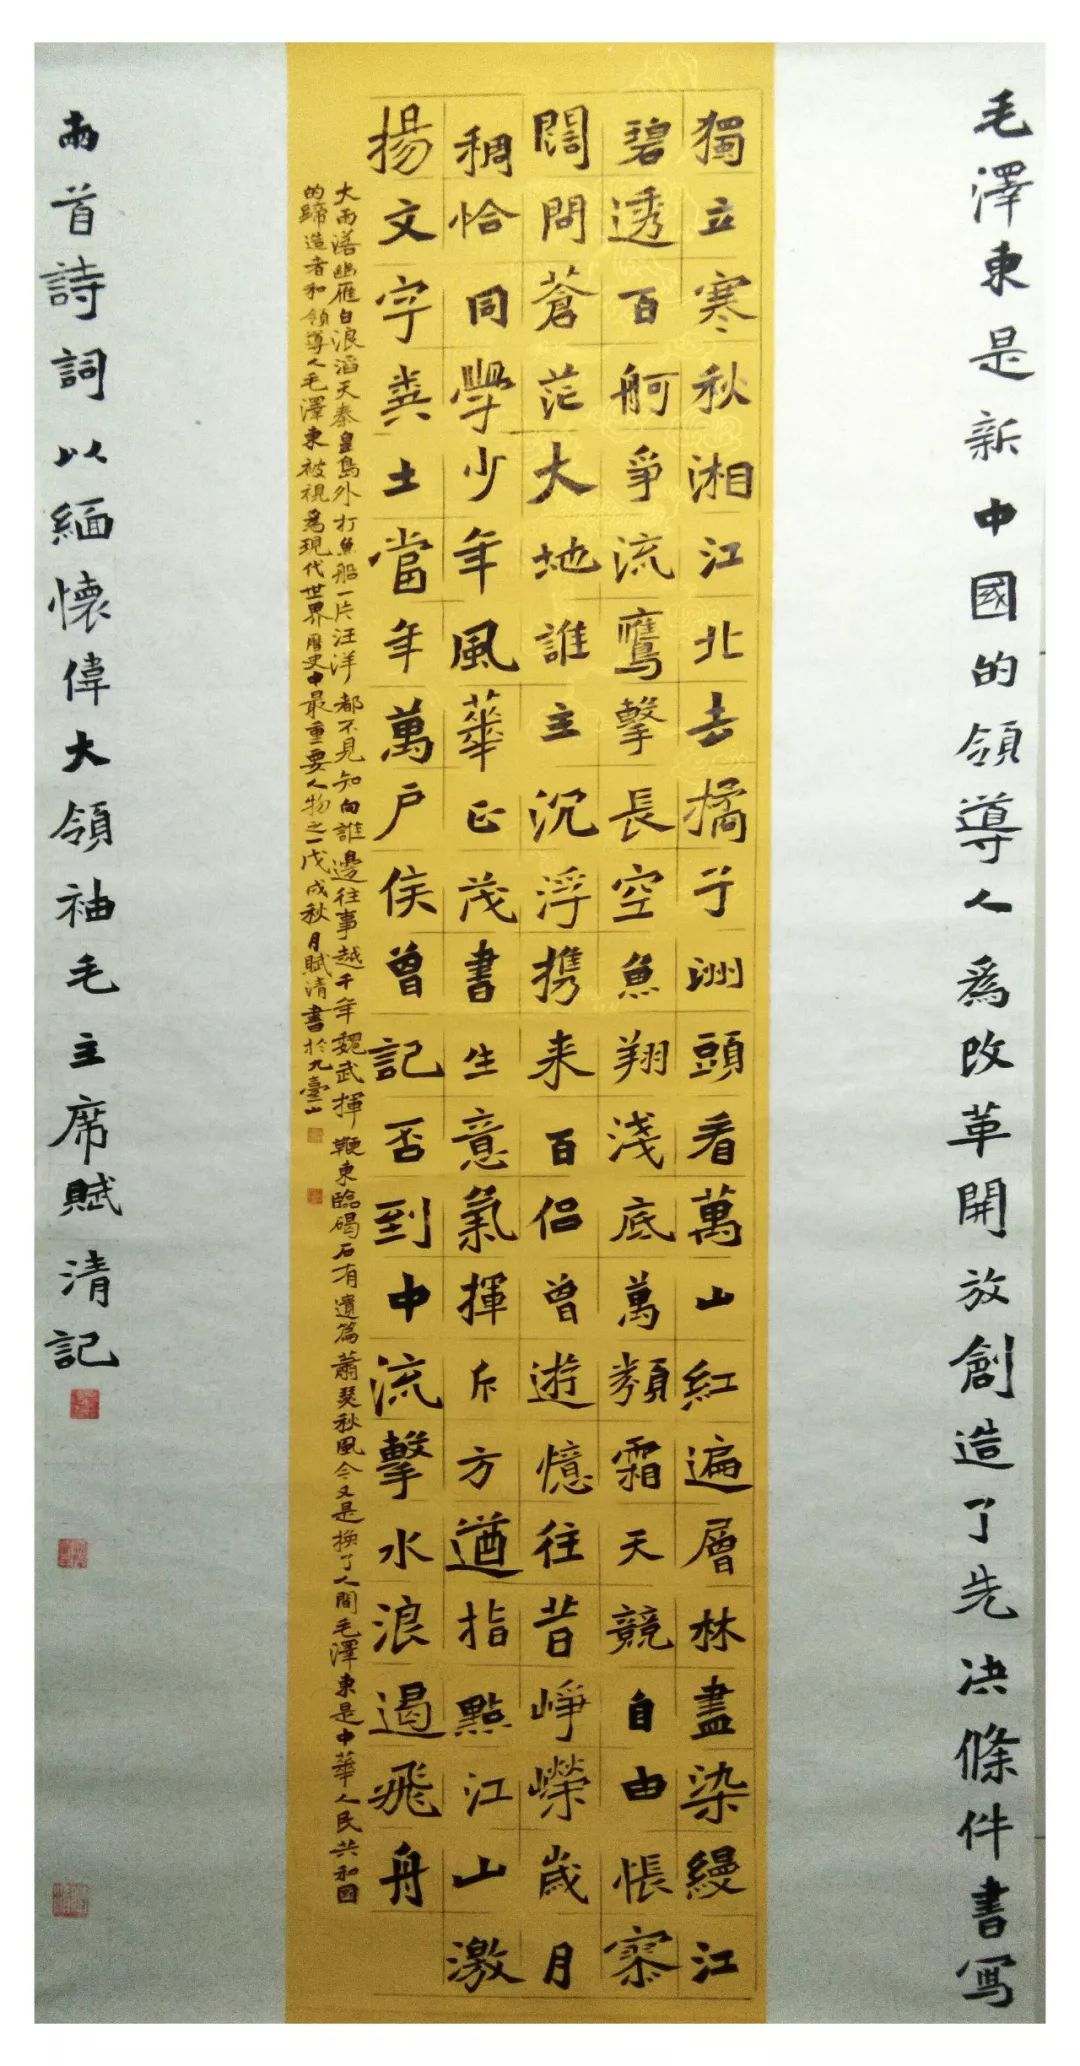 毛澤東是新中國的領導人為改革開放創造了先决條件書写
獨立寒秋湘江北去橘子洲頭看萬山紅遍層林盡染縵江
碧透百舸爭流鷹擊長空魚翔淺底萬類霜天競自由悵寥
闊問蒼茫大地誰主沉浮携来百侶曾遊憶往昔崢嶸歲月
稠恰同學少年風華正茂書生意氣揮斥方遒指點江山激
揚文字粪土當年萬户侯曾記否到中流擊水浪遏飛舟
大雨落幽雁白浪滔天秦皇島外打魚船一片汪洋都不見知向誰邊往事越千年魏武揮鞭東臨碣石有遺篇蕭瑟秋風今又是換了人間毛澤東是中華人民共和國
的蹄造者和領導人毛澤東被視為現代世界曆史中最重要人物之一戊戌秋月賦清書於九臺山
兩首詩詞以緬懷偉大領袖毛主席賦清記